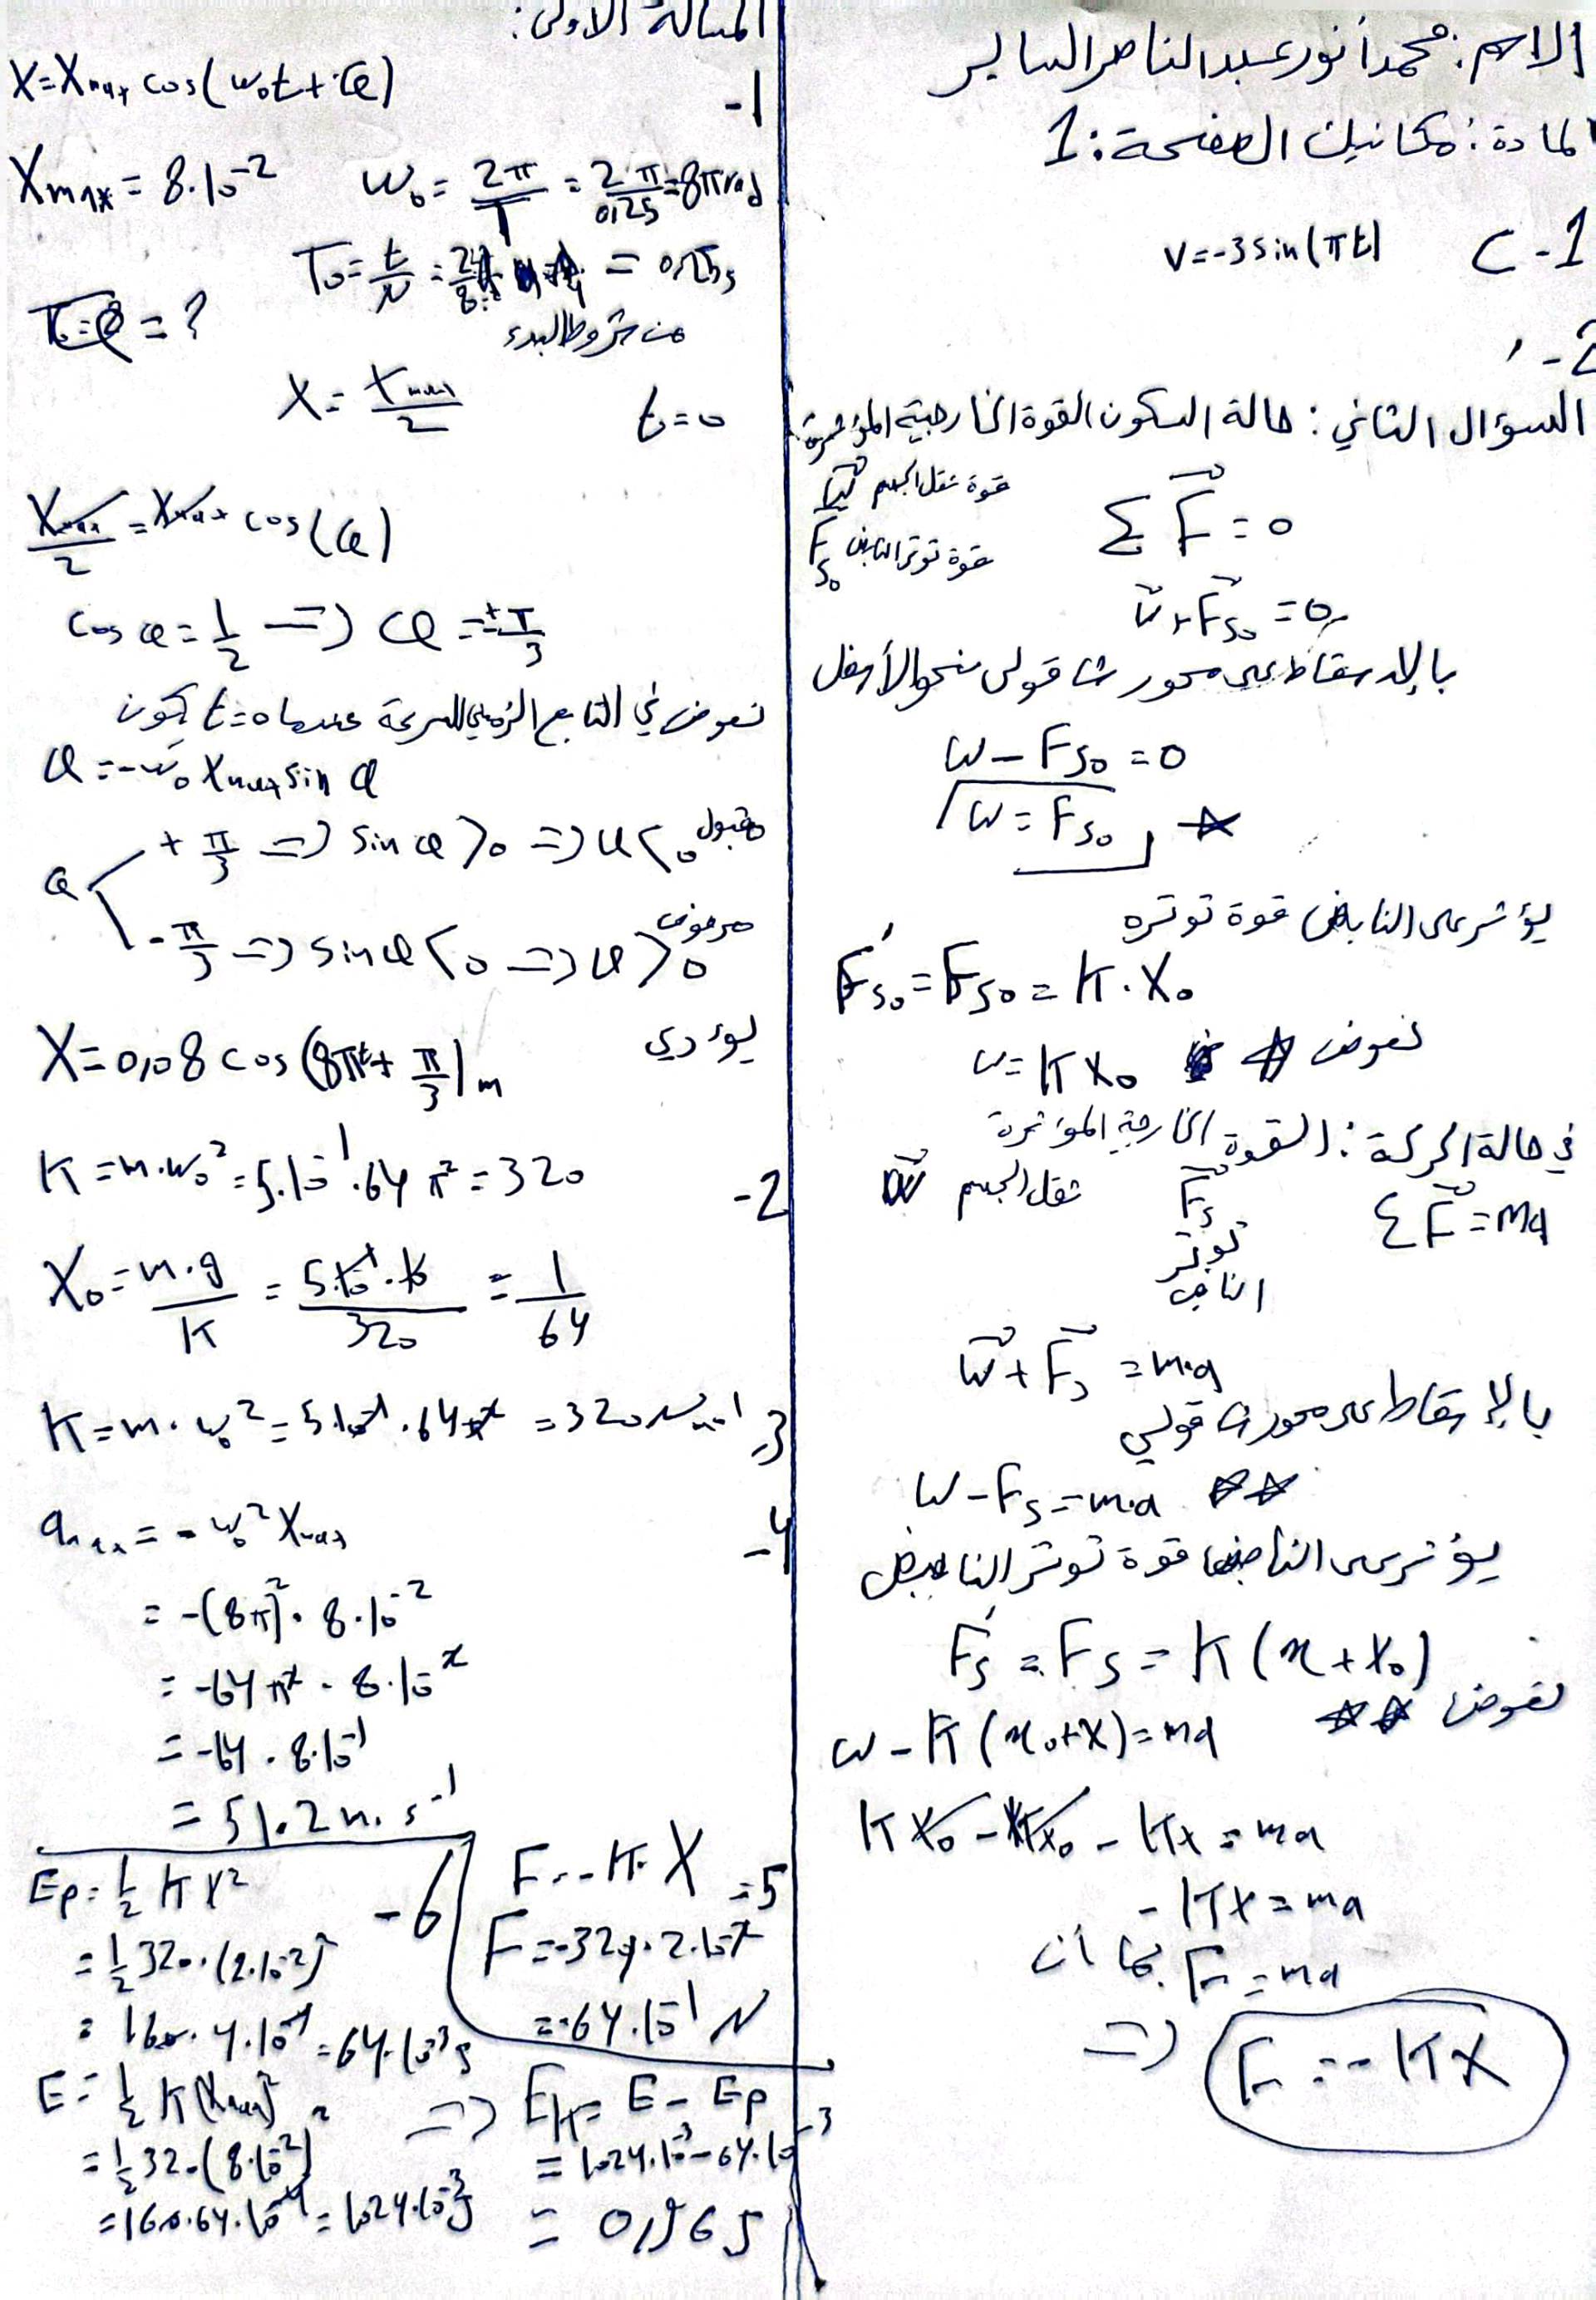 الاسم: محمد أنور عبد الناصر الساير
المادة: مكانيك الصفحة: 1
1- C v=-3 sin(πt)
2-
السؤال الثاني: حالة السكون القوة الخارجية المؤثرة
قوة ثقل الجسم W
ΣF = 0
قوة توتر النابض F S0
W + F S0 = 0
بالإسقاط على محور شاقولي نحو الأسفل
W - F S0 = 0
W = F S0 ☆
يؤثر على النابض قوة توتره
F'S0 = F S0 = K . X0
نعوض ☆ W = K X0
في حالة الحركة: القوة الخارجية المؤثرة
ΣF = ma
Fs توتر النابض
ثقل الجسم W
W + Fs = m.a
بالإسقاط على محور شاقولي
W - Fs = m.a ☆☆
يؤثر على النابض قوة توتر النابض
F's = Fs = K (x + X0)
نعوض ☆☆
W - K (x0 + x) = ma
K X0 - K X0 - K x = ma
- K x = ma
بما أن F = ma
=> F = - K X
المسألة الأولى:
1-
X = Xmax cos(w0t + φ)
Xmax = 8.10^-2 w0 = 2π/T = 2π/0,25 = 8π rad
T0 = t/N = = 0,25 s
φ = ?
من شروط البدء
X = Xmax/2 t = 0
Xmax/2 = Xmax cos(φ)
cos φ = 1/2 => φ = ±π/3
نعوض في التابع الزمني للسرعة عندما t=0 تكون
v = -w0 Xmax sin φ
φ + π/3 => sin φ > 0 => v < 0 مقبول
- π/3 => sin φ < 0 => v > 0 مرفوض
يؤدي
X = 0,08 cos(8πt + π/3) m
2- K = m.w0^2 = 5.10^-1 . 64 π^2 = 320
X0 = m.g/K = 5.10^-1.10/320 = 1/64
3- K = m.w0^2 = 5.10^-1 . 64π^2 = 320 N.m^-1
4- amax = - w0^2 Xmax
= -(8π)^2 . 8.10^-2
= -64 π^2 . 8.10^-2
= -64 . 8.10^-1
= 51.2 m.s^-1
5- F = - K . X
F = -320 . 2.10^-2
= -64.10^-1 N
6- Ep = 1/2 K X^2
= 1/2 320 . (2.10^-2)^2
= 160 . 4.10^-4 = 64.10^-3 J
E = 1/2 K (Xmax)^2
= 1/2 320 . (8.10^-2)^2
= 160 . 64.10^-4 = 1024.10^-3 J
=> Ek = E - Ep
= 1024.10^-3 - 64.10^-3
= 0,96 J